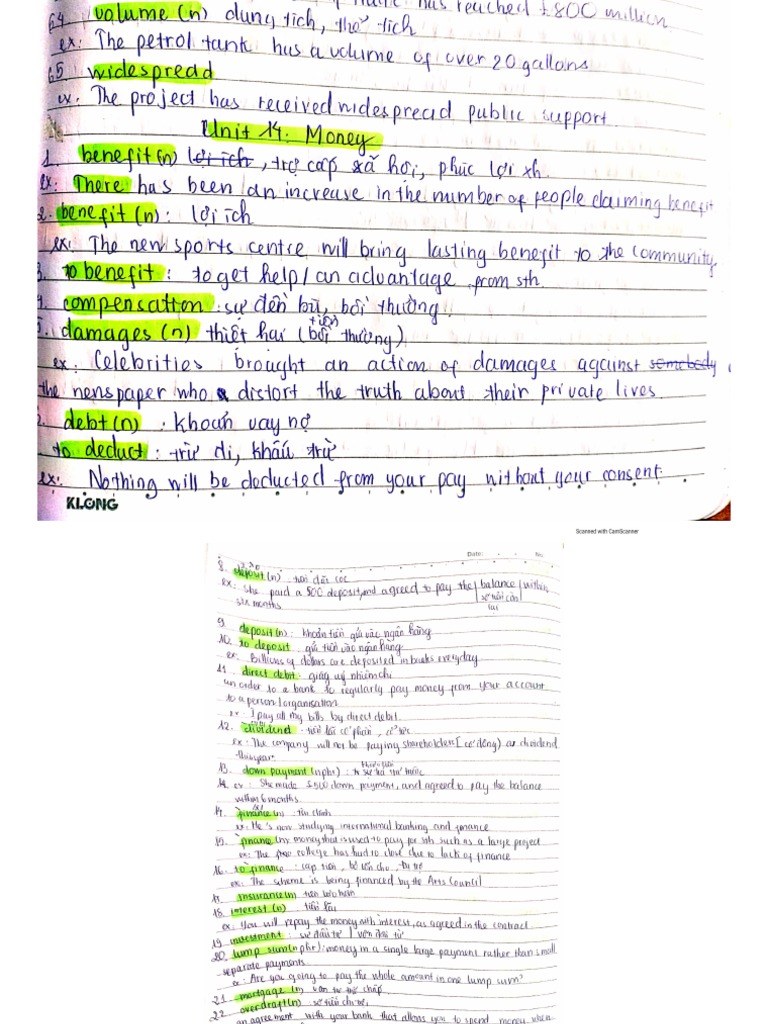 has reached £800 million
64. volume (n) dung tích, thể tích
ex: The petrol tank has a volume of over 20 gallons
65. widespread
ex: The project has received widespread public support.
Unit 14: Money
1. benefit (n) lợi ích, trợ cấp xã hội, phúc lợi xh.
ex: There has been an increase in the number of people claiming benefit
2. benefit (n): lợi ích
ex: The new sports centre will bring lasting benefit to the community.
3. to benefit: to get help / an advantage from sth.
4. compensation: sự đền bù, bồi thường.
5. damages (n) thiệt hại (tiền bồi thường)
ex: Celebrities brought an action of damages against somebody
the newspaper who distort the truth about their private lives.
debt (n): khoản vay nợ
to deduct: trừ đi, khấu trừ
ex: Nothing will be deducted from your pay without your consent.
KLONG
Scanned with CamScanner
Date: No:
8. deposit (n) tiền đặt cọc
ex: She paid a 500 deposit, and agreed to pay the balance within
số tiền còn
six months
9. deposit (n): khoản tiền gửi vào ngân hàng
10. to deposit gửi tiền vào ngân hàng
ex: Billions of dollars are deposited in banks everyday
11. direct debit: giấy uỷ nhiệm chi
an order to a bank to regularly pay money from your account
to a person/organisation
ex: I pay all my bills by direct debit.
12. dividend: tiền lãi cổ phần, cổ tức
ex: The company will not be paying shareholders (cổ đông) a dividend
this year
13. down payment (n phr):
14. ex: She made $500 down payment, and agreed to pay the balance
within 6 months.
14. finance (n) tài chính
ex: He's now studying international banking and finance
15. finance (n) money that is used to pay for sth such as a large project
ex: The college has had to close due to lack of finance
16. to finance: cấp tiền, bỏ vốn cho, tài trợ
ex: The scheme is being financed by the Arts Council
17. insurance (n) tiền bảo hiểm
18. interest (n) tiền lãi
ex: You will repay the money with interest, as agreed in the contract
19. investment: sự đầu tư / vốn đầu tư
20. lump sum (n phr): money in a single large payment rather than small
separate payments
ex: Are you going to pay the whole amount in one lump sum?
21. mortgage (n) thế chấp
22. overdraft (n)
an agreement with your bank that allows you to spend money when